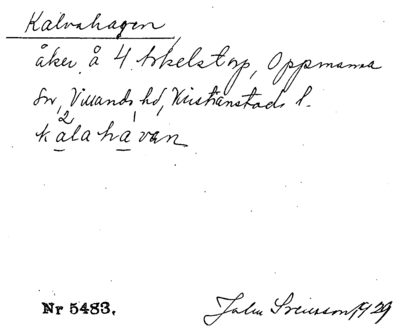 Kalvahagen,
åker å 4 Arkelstorp, Oppmanna
sn, Villands hd, Kristianstads l.
kalahavan
Nr 5483. John Svensson 1929